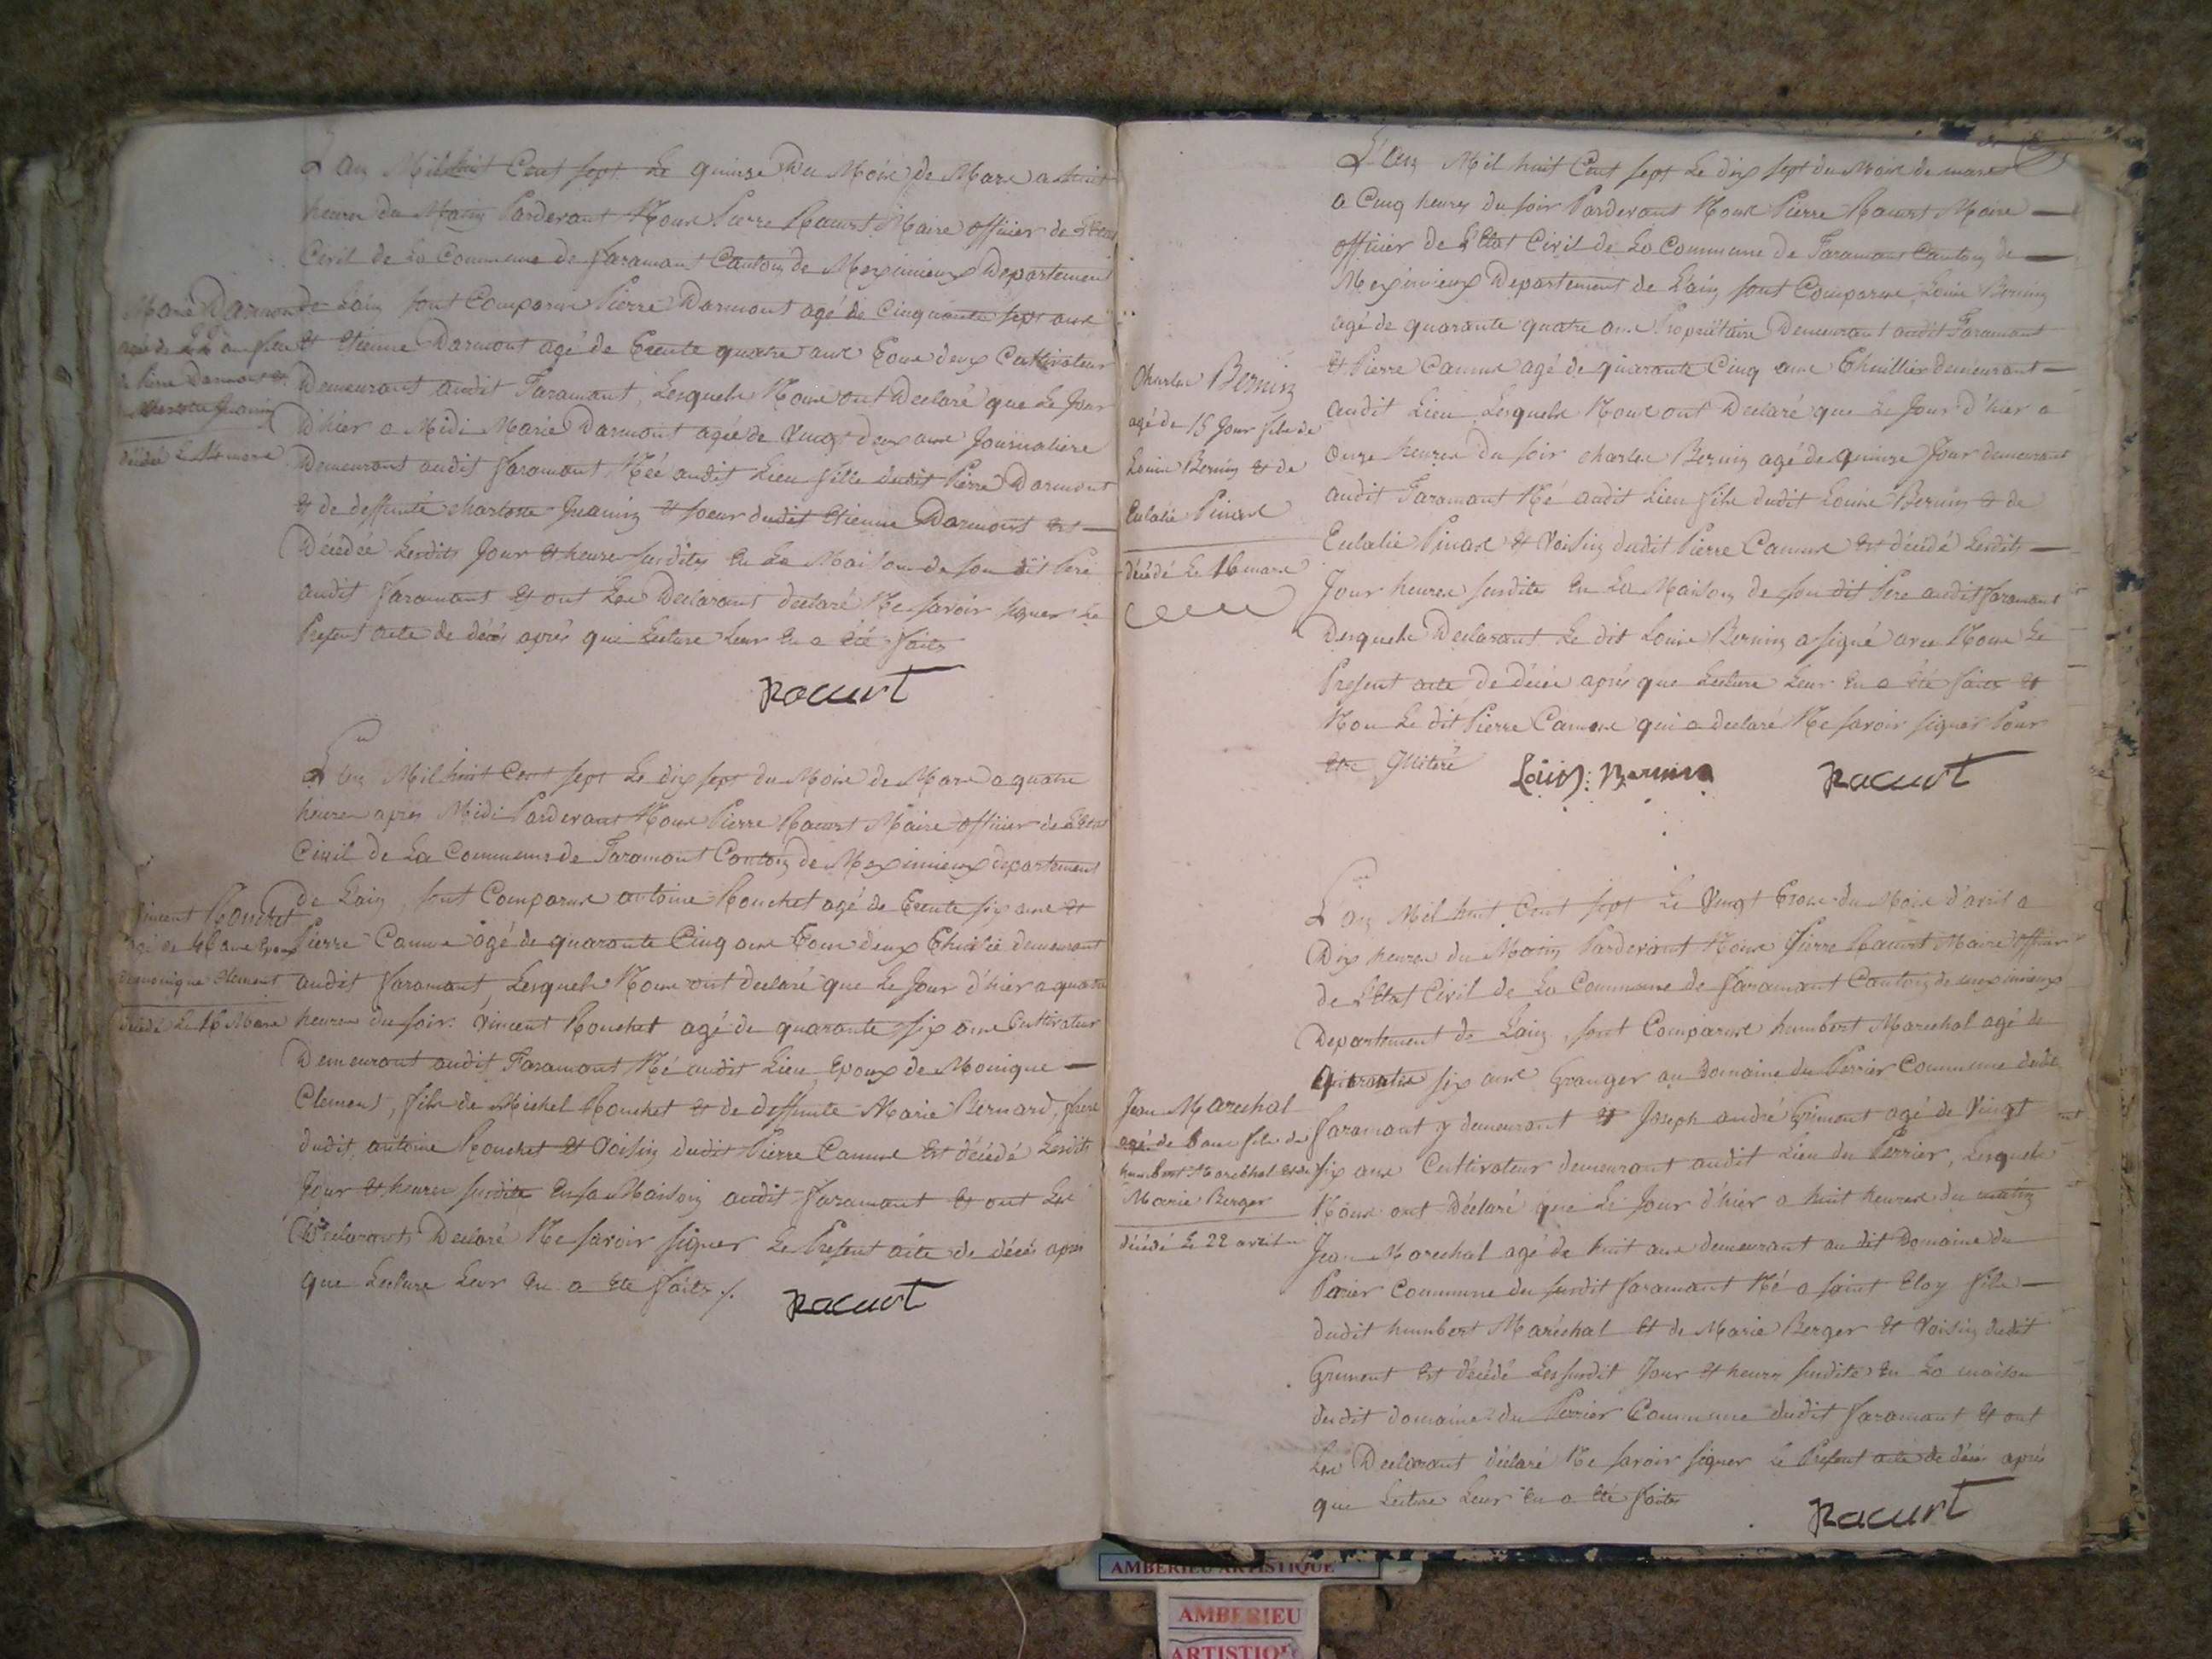 L'an Mil huit Cent sept Le quinze Du Mois de Mars a huit
heures du Matin Pardevant Nous Pierre Racurt Maire officier de L'Etat
Civil de La Commune de faramant Canton de Meximieux Departement
de Lain sont Comparus Pierre Darmont agé de Cinquante sept ans
et Etienne Darmont agé de trente quatre ans tous deux Cultivateur
Demeurants audit Faramant, Lesquels Nous ont Declaré que Le Jour
D'hier a Midi Marie Darmont agée de Vingt deux ans Journaliere
Demeurant audit faramant Néé audit Lieu fille dudit Pierre Darmont
et de deffunte charlotte Jeanin et soeur dudit Etienne Darmont est
Décédée Lesdits Jour et heure susdites En La Maison de son dit Pere
audit faramant et ont Les Declarants declaré Ne savoir signer Le
Present acte de décés aprés que Lecture Leur En a été faite
Racurt
Marie Darmont
agée de 22 ans fille
de Pierre Darmont et
Charlotte Jeanin
décédé le 14 mars
L'an Mil huit Cent sept Le dix sept du Mois de Mars a quatre
heures aprés Midi Pardevant Nous Pierre Racurt Maire officier de L'Etat
Civil de La Commune de Faramant Canton de Meximieux departement
de Lain, sont Comparus antoine Rouchet agé de trente six ans et
Pierre Camus agé de quarante Cinq ans tous deux demeurant
audit faramant, Lesquels Nous ont declaré que Le Jour d'hier a quatre
heures du soir Vincent Rouchet agé de quarante six ans Cultivateur
Demeurant audit Faramant Né audit Lieu Epoux de Monique
Clement, fils de Michel Rouchet et de deffunte Marie Bernard, frere
dudit antoine Rouchet et Voisin dudit Pierre Camus Est décédé Lesdits
Jour et heures susdite En sa Maison audit faramant et ont Les
Déclarants Declaré Ne savoir signer Le Present acte de décés aprés
que Lecture Leur En a été faite /.
Racurt
Vincent Rouchet
agé de 46 ans Epoux
de monique Clement
décédé Le 16 Mars
L'an Mil huit Cent sept Le dix sept du Mois de mars
a Cinq heures du soir Pardevant Nous Pierre Racurt Maire
officier de L'Etat Civil de La Commune de Faramant Canton de
Meximieux Departement de Lain sont Comparus Louis Bernin
agé de quarante quatre ans Propriétaire Demeurant audit Faramant
et Pierre Camus agé de quarante Cinq ans Thuillier demeurant
audit Lieu Lesquels Nous ont Declaré que Le Jour d'hier a
onze heures du soir charles Bernin agé de quinze Jour demeurant
audit Faramant Né audit Lieu fils dudit Louis Bernin et de
Eulalie Pinard et Voisin dudit Pierre Camus Est décédé Lesdits
Jour heures susdite En La Maison de son dit Pere audit faramant
Desquels Declarant Le dit Louis Bernin a signé avec Nous Le
Present acte de décés aprés que Lecture Leur En a été faite et
Non Le dit Pierre Camus qui a declaré Ne savoir signer Pour
Louis: Bernin Racurt
Charles Bernin
agé de 15 Jour fils de
Louis Bernin et de
Eulalie Pinard
décédé Le 16 mars
L'an Mil huit Cent sept Le Vingt trois du Mois d'avril a
Dix heures du Matin Pardevant Nous Pierre Racurt Maire officier
de L'Etat Civil de La Commune de faramant Canton de meximieux
Departement de Lain, sont Comparus humbert Marechal agé de
quarante six ans Granger au Domaine du Perrier Commune dudit
faramant y demeurant et Joseph andré Grument agé de Vingt
six ans Cultivateur demeurant audit Lieu du Perrier, Lesquels
Nous ont Déclaré que Le Jour d'hier a huit heures du matin
Jean Marechal agé de huit ans demeurant au dit Domaine du
Perier Commune du susdit faramant Né a saint Eloy fils
dudit humbert Maréchal et de Marie Berger et Voisin dudit
Grument Est décédé Les susdit Jour et heure susdite En La maison
dudit domaine du Perrier Commune dudit faramant et ont
Les Declarant déclaré Ne savoir signer Le Present acte de décés aprés
que Lecture Leur En a été faite
Racurt
Jean Marechal
agé de 8 ans fils de
humbert Marechal et de
Marie Berger
décédé Le 22 avril
AMBERIEU ARTISTIQUE
AMBERIEU
ARTISTIQUE